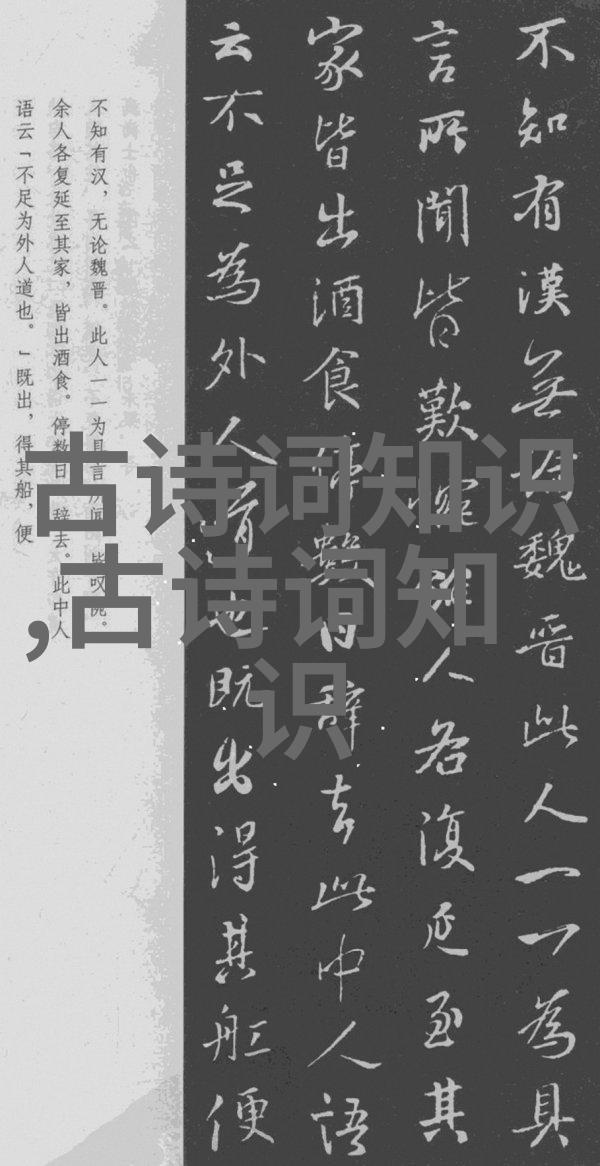 不知有漢無論魏晋此人一一為具
言所聞皆歎惋餘人各復延至其
家皆出酒食停數日辭去此中人語
云不足為外人道也既出得其舡便
不知有汉，无论魏晋。此人一一为具言所闻，皆叹惋。
余人各复延至其家，皆出酒食。停数日，辞去。此中人
语云「不足为外人道也。」既出，得其船，便
古诗词知识
,古诗词知
识